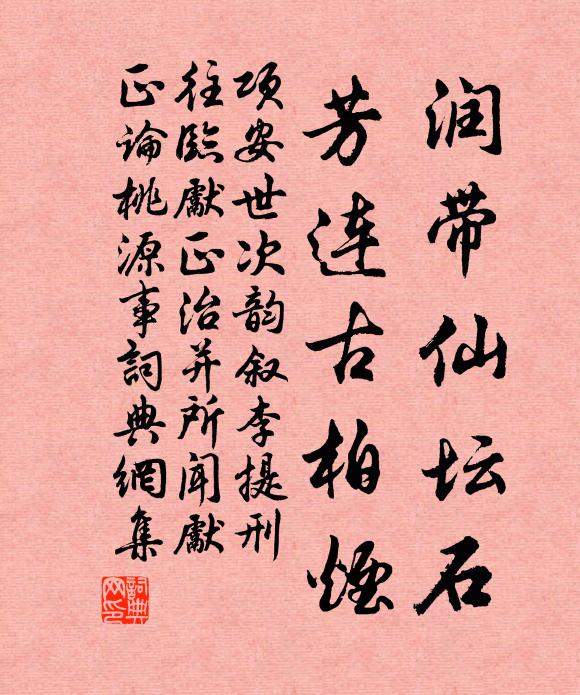 润带仙坛石
芳连古柏烟
项安世次韵叙李提刑
往临献正治并所闻献
正论桃源事词典网集
词典网印